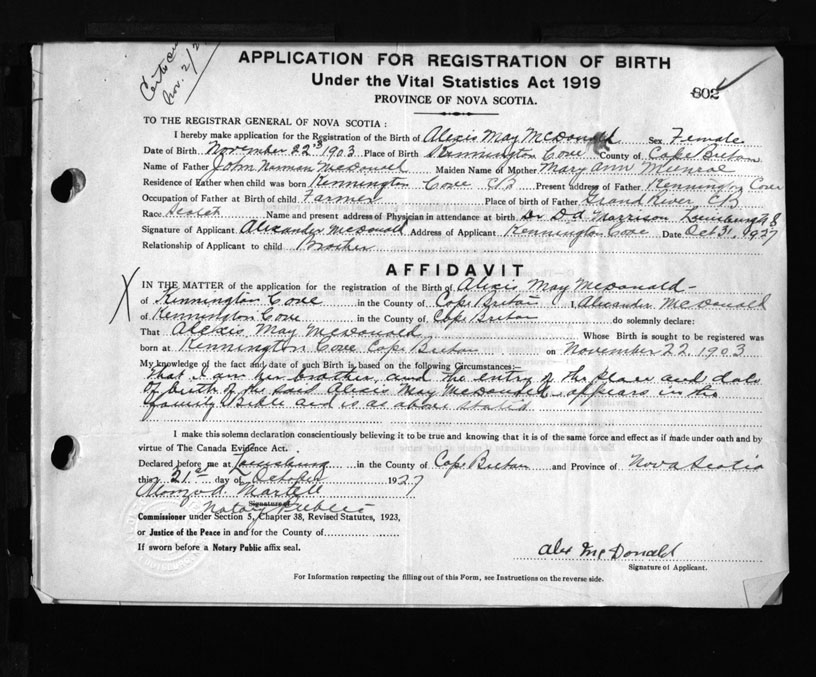 Certi
Nov. 2/2
APPLICATION FOR REGISTRATION OF BIRTH
Under the Vital Statistics Act 1919
802
PROVINCE OF NOVA SCOTIA.
TO THE REGISTRAR GENERAL OF NOVA SCOTIA:
I hereby make application for the Registration of the Birth of Alexis May McDonald Sex Female
Date of Birth November 22 1903 Place of Birth Kennington Cove County of Cape Breton
Name of Father John Norman McDonald Maiden Name of Mother Mary Ann Munroe
Residence of Father when child was born Kennington Cove CB Present address of Father Kennington Cove
Occupation of Father at Birth of child Farmer Place of birth of Father Grand River, CB
Race Scotch Name and present address of Physician in attendance at birth Dr D.A Morrison Louisburg
Signature of Applicant Alexander McDonald Address of Applicant Kennington Cove Date Oct 31, 1927
Relationship of Applicant to child Brother
AFFIDAVIT
X IN THE MATTER of the application for the registration of the Birth of Alexis May McDonald
of Kennington Cove in the County of Cape Breton I, Alexander McDonald
of Kennington Cove in the County of Cape Breton do solemnly declare:
That Alexis May McDonald Whose Birth is sought to be registered was
born at Kennington Cove Cape Breton on November 22 1903
My knowledge of the fact and date of such Birth is based on the following Circumstances:—
That I am her brother and the entry of the place and date
of birth of the said Alexis May McDonald appears in the
family Bible and is as above stated
I make this solemn declaration conscientiously believing it to be true and knowing that it is of the same force and effect as if made under oath and by
virtue of The Canada Evidence Act.
Declared before me at Louisburg in the County of Cape Breton and Province of Nova Scotia
this 21st day of October 1927
Alonzo A. Martell
Signature of
Notary Public
Commissioner under Section 5, Chapter 38, Revised Statutes, 1923,
or Justice of the Peace in and for the County of
If sworn before a Notary Public affix seal.
Alex McDonald
Signature of Applicant.
For Information respecting the filling out of this Form, see Instructions on the reverse side.